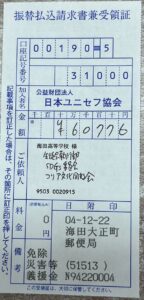 振替払込請求書兼受領証
口座記号番号
00190=5
31000
加入者名
公益財団法人
日本ユニセフ協会
金額
¥60776
ご依頼人
海田高等学校 様
9503 0020915
料金
0
日附印
04-12-22
海田大正町
郵便局
備考
免除
災害等 (51513)
義援金 N94220004
この受領証は、大切に保管してください。
記載事項を訂正した場合は、その箇所に訂正印を押してください。